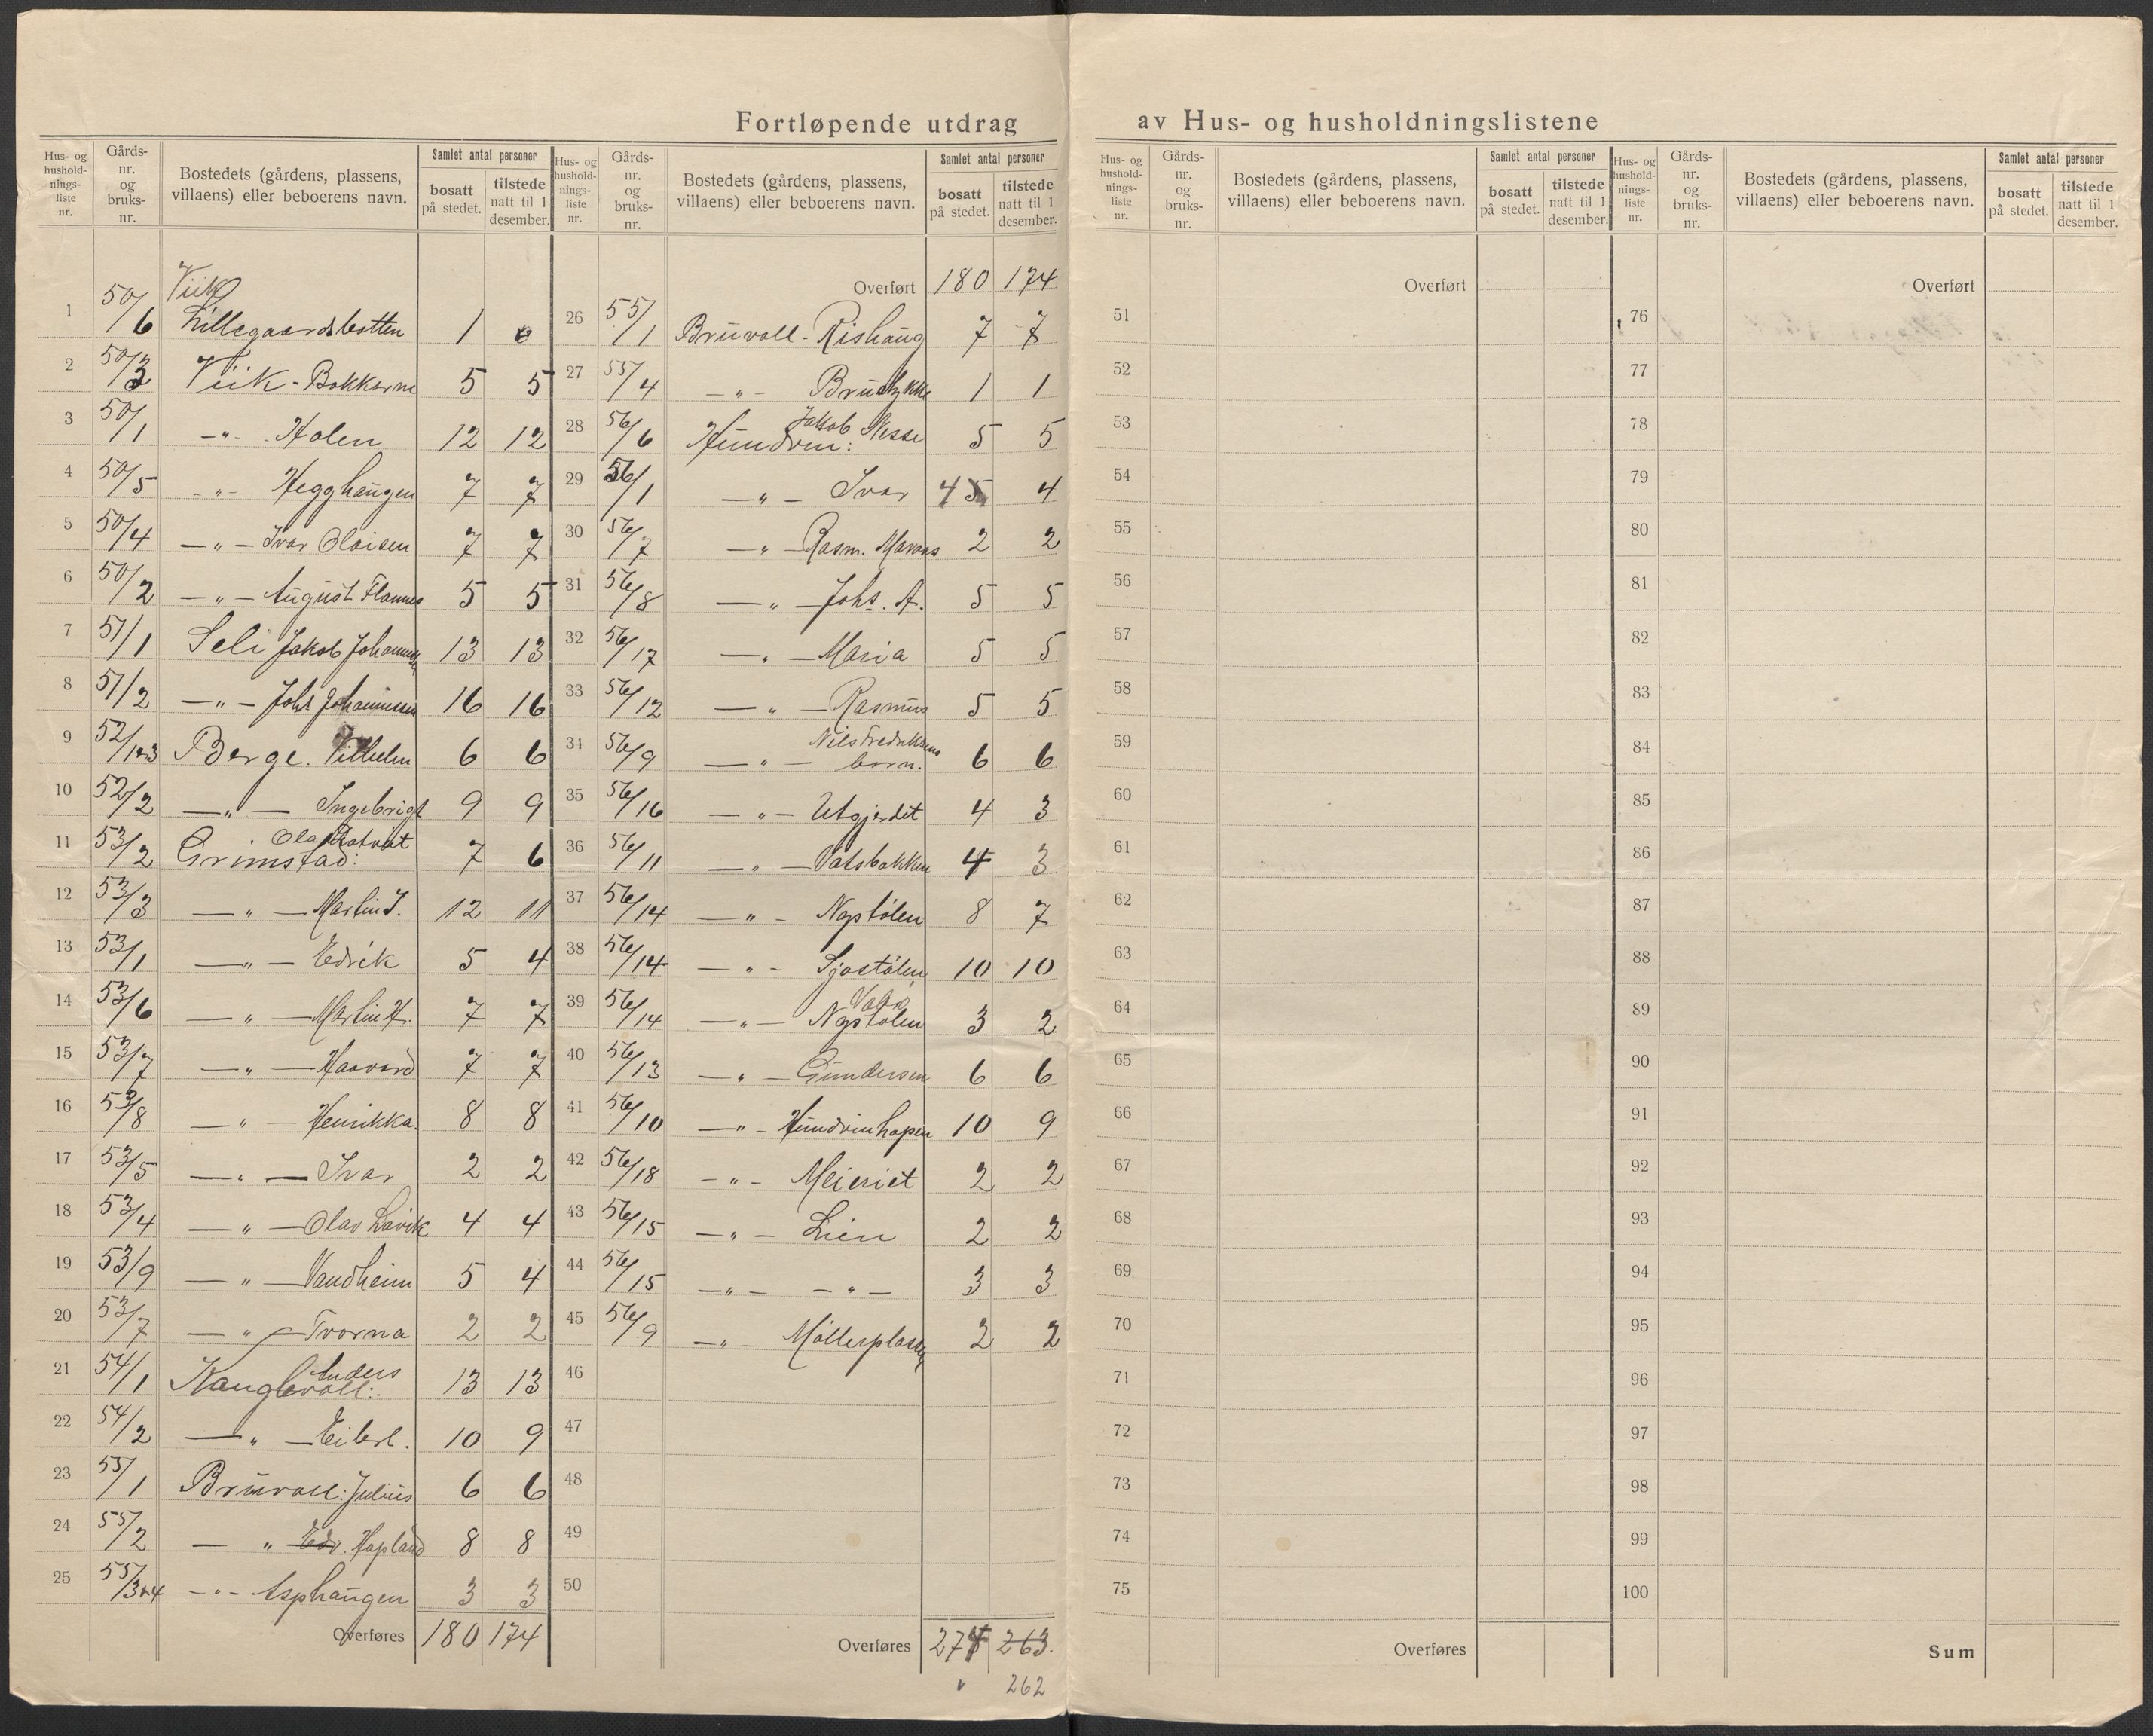 Fortløpende utdrag av Hus- og husholdningslistene
Hus- og hushold- nings- liste nr.
Gårds- nr. og bruks- nr.
Bostedets (gårdens, plassens, villaens) eller beboerens navn.
Samlet antal personer
bosatt på stedet.
tilstede natt til 1 desember.
Hus- og hushold- nings- liste nr.
Gårds- nr. og bruks- nr.
Bostedets (gårdens, plassens, villaens) eller beboerens navn.
Samlet antal personer
bosatt på stedet.
tilstede natt til 1 desember.
Viik
1 50/6 Lillegaardsbotten 1 0
2 50/3 Viik - Bakkarne 5 5
3 50/1 -"- Holen 12 12
4 50/5 -"- Hegghaugen 7 7
5 50/4 -"- Ivar Olaisen 7 7
6 50/2 -"- August Flannes 5 5
7 51/1 Seli Jakob Johannessen 13 13
8 51/2 -"- Johs Johannessen 16 16
9 52/1+3 Berge. Vilhelm 6 6
10 52/2 -"- Ingebrigt 9 9
11 53/2 Grimstad: Ola 7 6
12 53/3 -"- Martin J. 12 11
13 53/1 -"- Edvik 5 4
14 53/6 -"- Martin H. 7 7
15 53/7 -"- Haavard 7 7
16 53/8 -"- Henrikka. 8 8
17 53/5 -"- Ivar 2 2
18 53/4 -"- Olav Lavik 4 4
19 53/9 -"- Vandheim 5 4
20 53/7 -"- Tvorna 2 2
21 54/1 Kanglevoll: Anders 13 13
22 54/2 -"- Eilert. 10 9
23 55/1 Bruvoll: Julius 6 6
24 55/2 -"- Edv. Hapland 8 8
25 55/3+4 -"- Asphaugen 3 3
Overføres 180 174
Overført 180 174
26 55/1 Bruvoll - Rishaug 7 7
27 55/4 -"- Brustykke 1 1
28 56/6 Hundven: Jakob Nesse 5 5
29 56/1 -"- Ivar 4 5 4
30 56/7 -"- Rasm. Maraas 2 2
31 56/8 -"- Johs. A. 5 5
32 56/17 -"- Maria 5 5
33 56/12 -"- Rasmus 5 5
34 56/9 -"- Nils Fredriksens born. 6 6
35 56/16 -"- Utgjerdet 4 3
36 56/11 -"- Vatsbakken 4 3
37 56/14 -"- Nystølen 8 7
38 56/14 -"- Sjostølen 10 10
39 56/14 -"- Nystølen 3 2
40 56/13 -"- Gundersen 6 6
41 56/10 -"- Hundvinhopen 10 9
42 56/18 -"- Meieriet 2 2
43 56/15 -"- Lien 2 2
44 56/15 -"- -"- 3 3
45 56/9 -"- Møllerplassen 2 2
46
47
48
49
50
Overføres 274 263.
262
Hus- og hushold- nings- liste nr.
Gårds- nr. og bruks- nr.
Bostedets (gårdens, plassens, villaens) eller beboerens navn.
Samlet antal personer
bosatt på stedet.
tilstede natt til 1 desember.
Hus- og hushold- nings- liste nr.
Gårds- nr. og bruks- nr.
Bostedets (gårdens, plassens, villaens) eller beboerens navn.
Samlet antal personer
bosatt på stedet.
tilstede natt til 1 desember.
Overført
51
52
53
54
55
56
57
58
59
60
61
62
63
64
65
66
67
68
69
70
71
72
73
74
75
Overføres
Overført
76
77
78
79
80
81
82
83
84
85
86
87
88
89
90
91
92
93
94
95
96
97
98
99
100
Sum